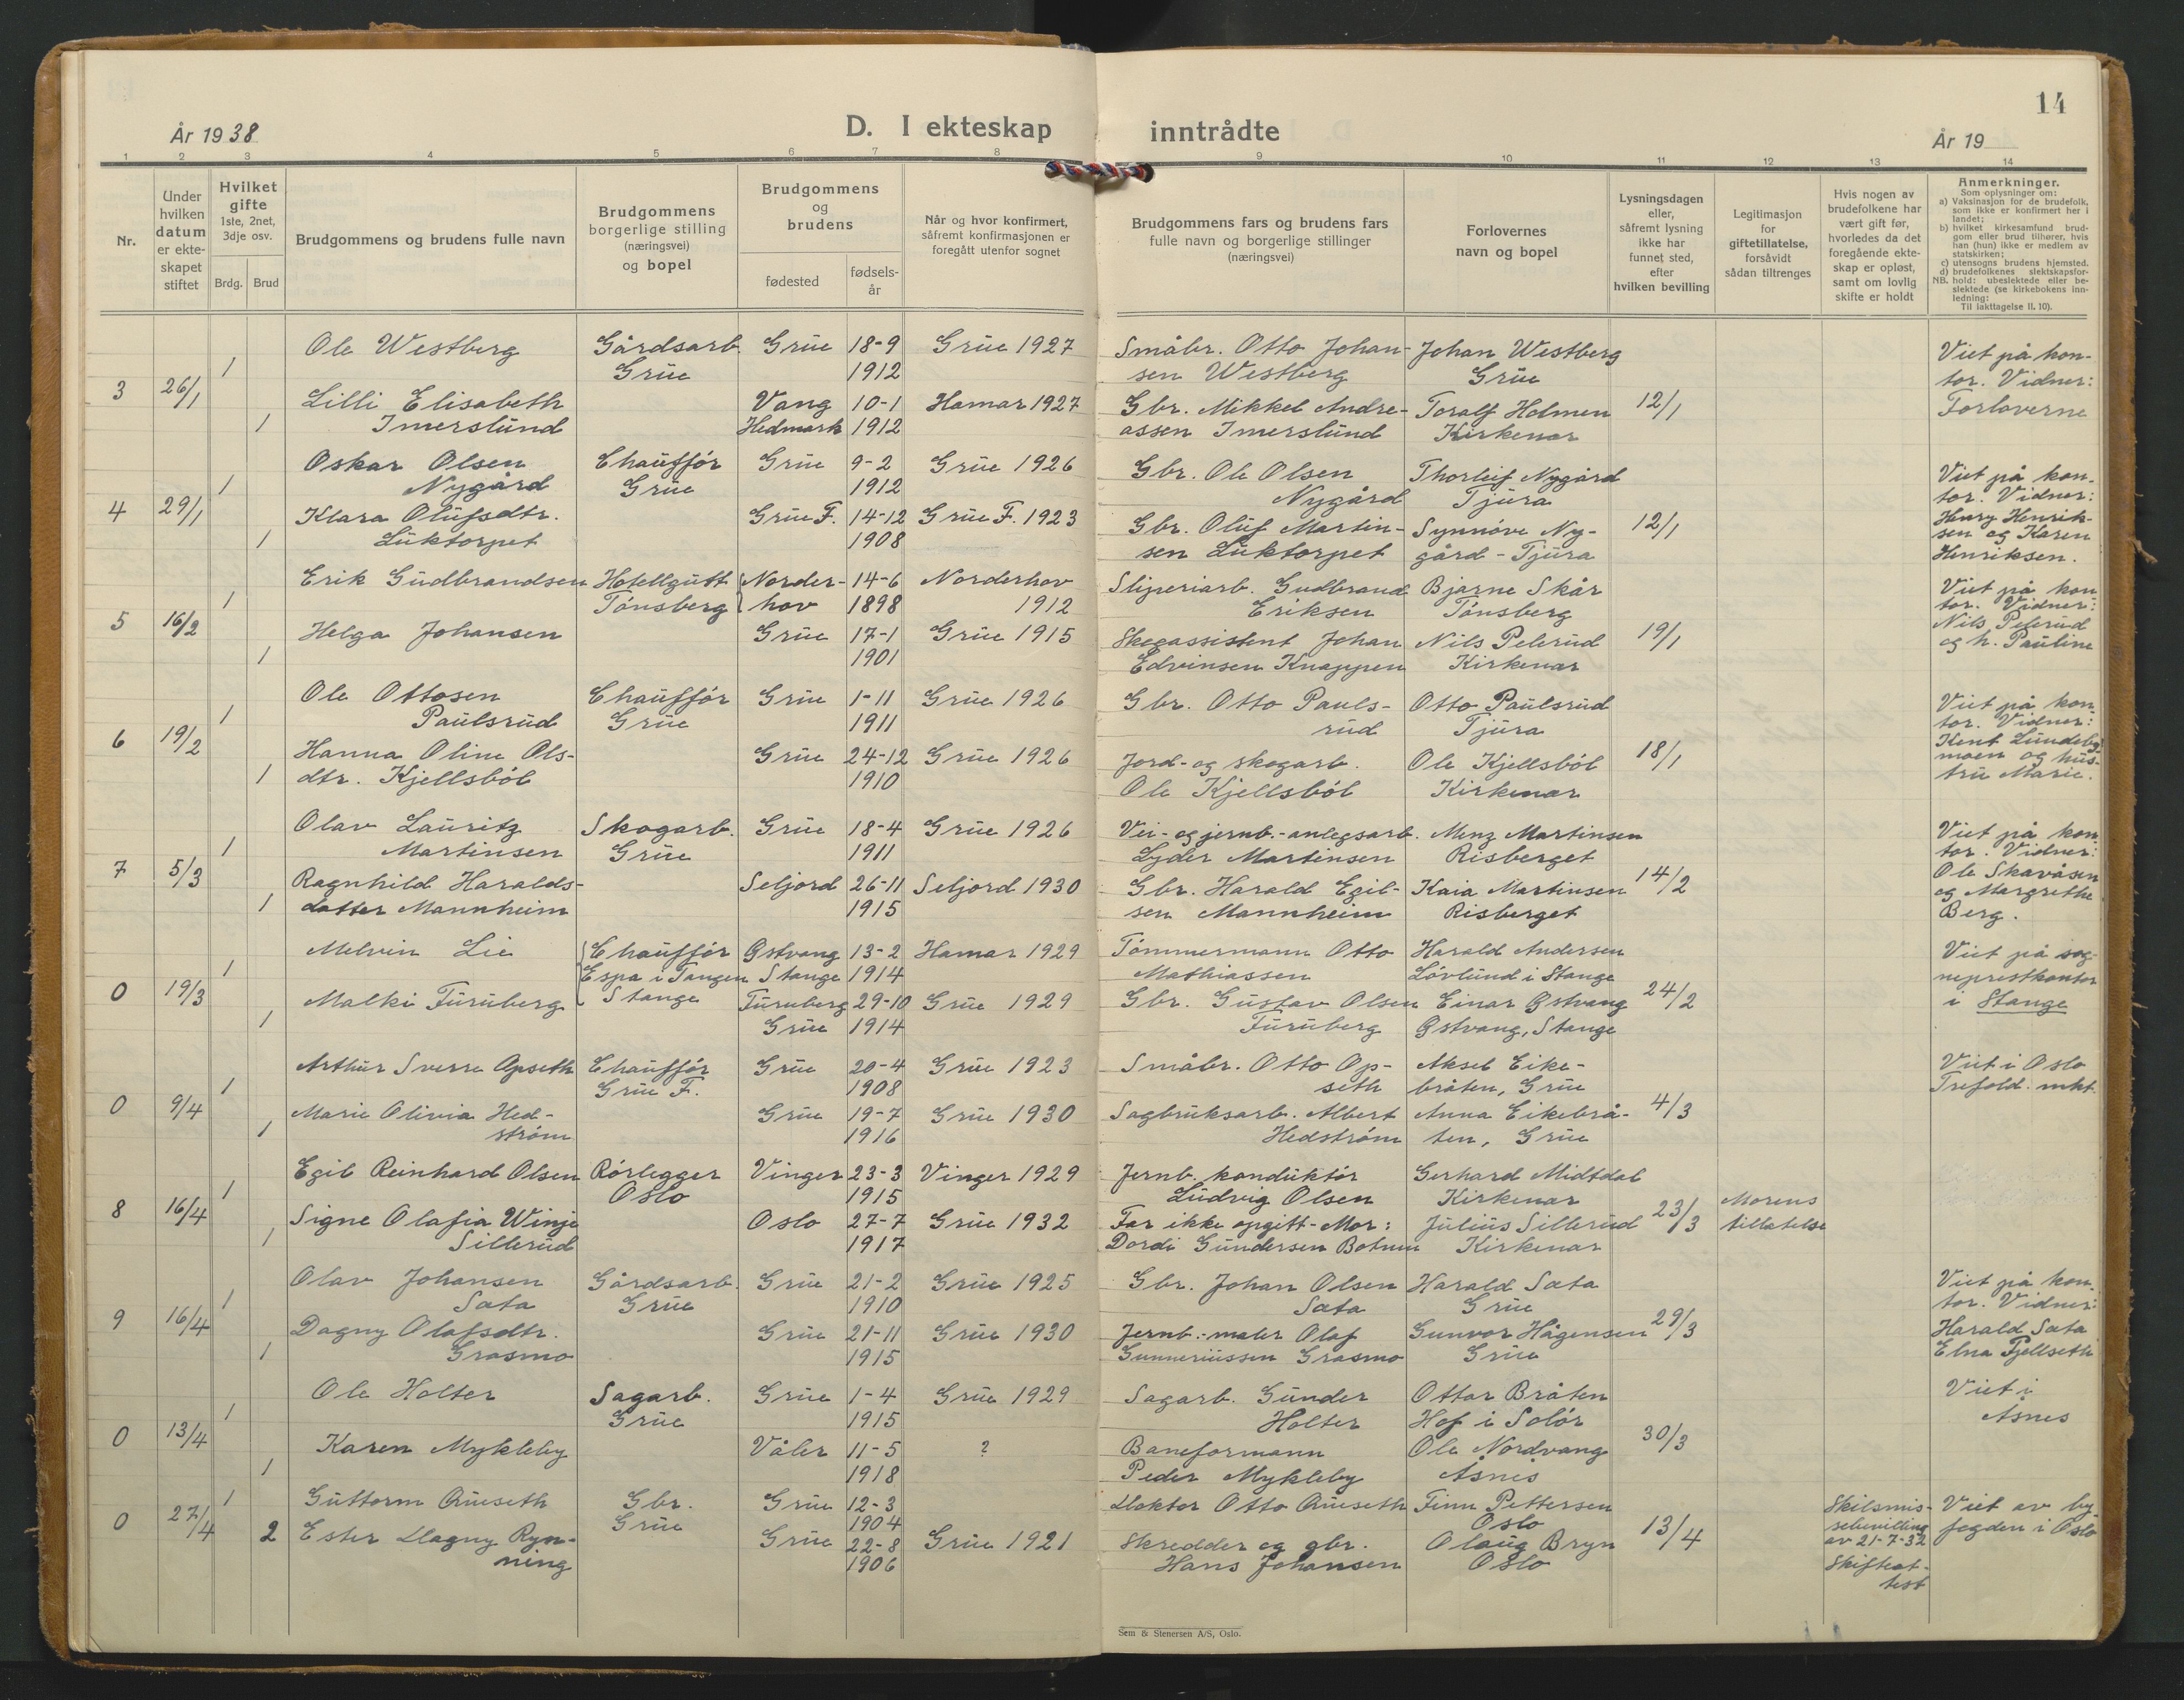 14
År 1938
D. I ekteskap inntrådte
År 19
1 2 3 4 5 6 7 8 9 10 11 12 13 14
Nr.
Under hvilken datum er ekte-skapet stiftet
Hvilket gifte
1ste, 2net, 3dje osv.
Brdg. Brud
Brudgommens og brudens fulle navn
Brudgommens borgerlige stilling (næringsvei) og bopel
Brudgommens og brudens
fødested
fødsels-år
Når og hvor konfirmert, såfremt konfirmasjonen er foregått utenfor sognet
Brudgommens fars og brudens fars fulle navn og borgerlige stillinger (næringsvei)
Forlovernes navn og bopel
Lysningsdagen eller, såfremt lysning ikke har funnet sted, efter hvilken bevilling
Legitimasjon for giftetillatelse, forsåvidt sådan tiltrenges
Hvis nogen av brudefolkene har vært gift før, hvorledes da det foregående ekte-skap er opløst, samt om lovlig skifte er holdt
Anmerkninger.
Som oplysninger om:
a) Vaksinasjon for de brudefolk, som ikke er konfirmert her i landet;
b) hvilket kirkesamfund brud-gom eller brud tilhører, hvis han (hun) ikke er medlem av statskirken;
c) utensogns brudens hjemsted.
d) brudefolkenes slektskapsfor-hold: ubeslektede eller be-slektede (se kirkebokens inn-ledning:
NB.
Til iakttagelse II. 10).
3 26/1
1 Ole Westberg Gårdsarb. Grue 18-9 Grue 1927 Småbr. Otto Johan- Johan Westberg Viet på kon-
Grue 1912 sen Westberg Grue tor. Vidner:
1 Lilli Elisabeth Vang 10-1 Hamar 1927 Gbr. Mikkel Andre- Toralf Holmen 12/1 Forloverne
Imerslund Hedmark 1912 assen Imerslund Kirkenær
4 29/1
1 Oskar Olsen Chauffør Grue 9-2 Grue 1926 Gbr. Ole Olsen Thorleif Nygård Viet på kon-
Nygård Grue 1912 Nygård Tjura tor. Vidner:
1 Klara Olufsdtr. Grue F. 14-12 Grue F. 1923 Gbr. Oluf Martin- Synnøve Ny- 12/1 Henry Henrik-
Luktorpet 1908 sen Luktorpet gård - Tjura sen og Karen
Henriksen.
5 16/2
1 Erik Gudbrandsen Hotellgutt Norder- 14-6 Norderhov Sliperiarb. Gudbrand Bjarne Skår Viet på kon
Tønsberg hov 1898 1912 Eriksen Tønsberg tor. Vidner:
1 Helga Johansen Grue 17-1 Grue 1915 Skogassistent Johan Nils Pelerud 19/1 Nils Pelerud
1901 Edvinsen Knappen Kirkenær og h. Pauline
6 19/2
1 Ole Ottosen Chauffør Grue 1-11 Grue 1926 Gbr. Otto Pauls- Otto Paulsrud Viet på kon
Paulsrud Grue 1911 rud Tjura tor. Vidner:
1 Hanna Oline Ols- Grue 24-12 Grue 1926 Jord- og skogarb. Ole Kjellsbøl 18/1
dtr. Kjellsbøl 1910 Ole Kjellsbøl Kirkenær moen og hus-
tru Marie.
7 5/3
1 Olav Lauritz Skogarb. Grue 18-4 Grue 1926 Vei- og jernb.-anlegsarb. Menz Martinsen Viet på kon
Martinsen Grue 1911 Lyder Martinsen Risberget tor. Vidner:
1 Ragnhild Haralds- Seljord 26-11 Seljord 1930 Gbr. Harald Egil- Kaia Martinsen 14/2 Ole Skavåsen
datter Mannheim 1915 sen Mannheim Risberget og Margrethe
Berg.
0 19/3
1 Melvin Lie Chauffør Østvang 13-2 Hamar 1929 Tømmermann Otto Harald Andersen Viet på sog-
Espa i Tangen Stange 1914 Mathiassen Løvlund i Stange neprestkontor
1 Malki Furuberg Stange Furuberg 29-10 Grue 1929 Gbr. Gustav Olsen Einar Østvang 24/2 i Stange
Grue 1914 Furuberg Østvang, Stange
0 9/4
1 Arthur Sverre Opseth Chauffør Grue 20-4 Grue 1923 Småbr. Otto Op- Aksel Eike- Viet i Oslo
Grue F. 1908 seth bråten, Grue Trefold. mkt.
1 Marie Olivia Hed- Grue 19-7 Grue 1930 Sagbruksarb. Albert Anna Eikebrå- 4/3
strøm 1916 Hedstrøm ten, Grue
8 16/4
1 Egil Reinhard Olsen Rørlegger Vinger 23-3 Vinger 1929 Jernb. konduktør Gerhard Midtdal
Oslo 1915 Ludvig Olsen Kirkenær Morens
1 Signe Olafia Winje Oslo 27-7 Grue 1932 Far ikke opgitt - Mor: Julius Sillerud 23/3 tillatelse
Sillerud 1917 Dordi Gundersen Botnen Kirkenær
9 16/4
1 Olav Johansen Gårdsarb. Grue 21-2 Grue 1925 Gbr. Johan Olsen Harald Sæta Viet på kon
Sæta Grue 1910 Sæta Grue tor. Vidner:
1 Dagny Olafsdtr. Grue 21-11 Grue 1930 Jernb.-maler Olaf Gunvor Hågensen 29/3 Harald Sæta
Grasmo 1915 Gunneriussen Grasmo Grue Elna Fjellseth
0 13/4
1 Ole Holter Sagarb. Grue 1-4 Grue 1929 Sagarb. Gunder Ottar Bråten Viet i
Grue 1915 Holter Hof i Solør Åsnes
1 Karen Mykleby Våler 11-5 ? Baneformann Ole Nordvang 30/3
1918 Peder Mykleby Åsnes
0 27/4
1 Guttorm Grueseth Gbr. Grue 12-3 Doktor Otto Grueseth Finn Pettersen Skilsmis- Viet av by
Grue 1904 Oslo sebevilling fogden i Oslo
2 Ester Dagny Ryn- Grue 22-8 Grue 1921 Skredder og gbr. Olaug Bryn 13/4 av 21-7-32
ning 1906 Hans Johansen Oslo Skifteat-
test
Sem & Stenersen A/S, Oslo.